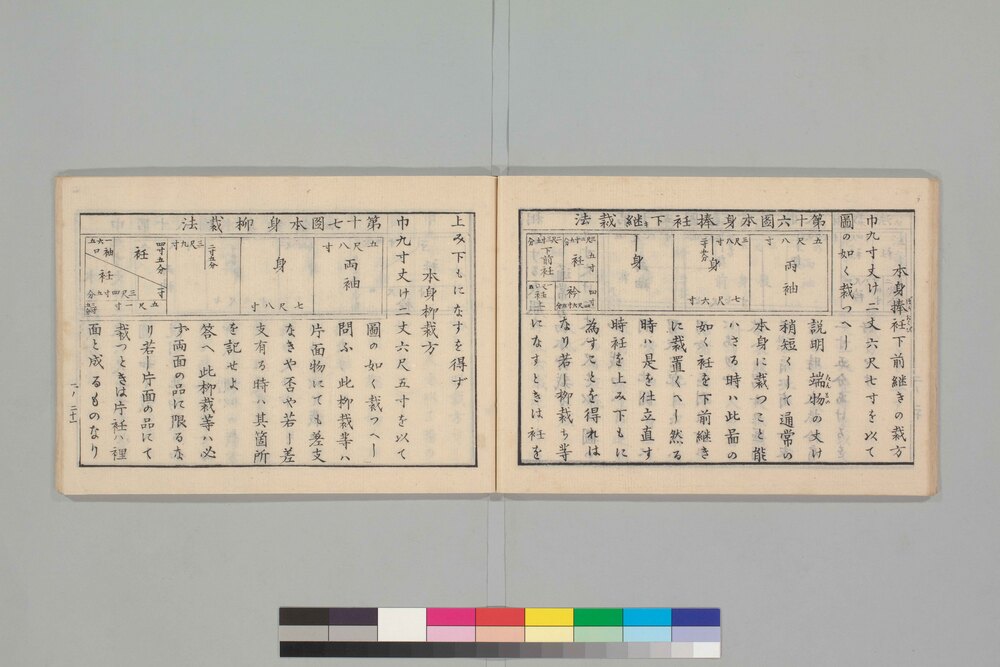 本身捧衽下前継きの裁方
巾九寸丈け二丈六尺七寸を以て
圖の如く裁つへし
第十六図本身捧衽下継裁法
五尺八寸
両袖
三尺八寸
身
七尺六寸
身
衽
五寸
衿
下前衽
説明 時 端物の丈け
稍短くして通常の
本身に裁つこと能
ハさる時ハ此啚の
如く衽を下前継き
に裁置くへし然る
時ハ是を仕立直す
時衽を上み下もに
為すことを得れは
なり若し柳裁ち等
になすときは衽を
上み下もになすを得ず
本身柳裁方
巾九寸丈け二丈六尺五寸を以て
第十七圖本身柳裁法
五尺八寸
両袖
身
七尺八寸
三尺九寸
二寸五分
四寸五分
衽
衽
五尺一寸
三尺四寸五分
袖口
圖の如く裁つへし
問ふ 此柳裁等ハ
片面物にても差支
なきや否や若し差
支有る時ハ其箇所
を記せよ
答へ 此柳裁等ハ必
ず両面の品に限るな
り若し片面の品にて
裁つときは片衽ハ裡
面と成るものなり
一ノ二十一